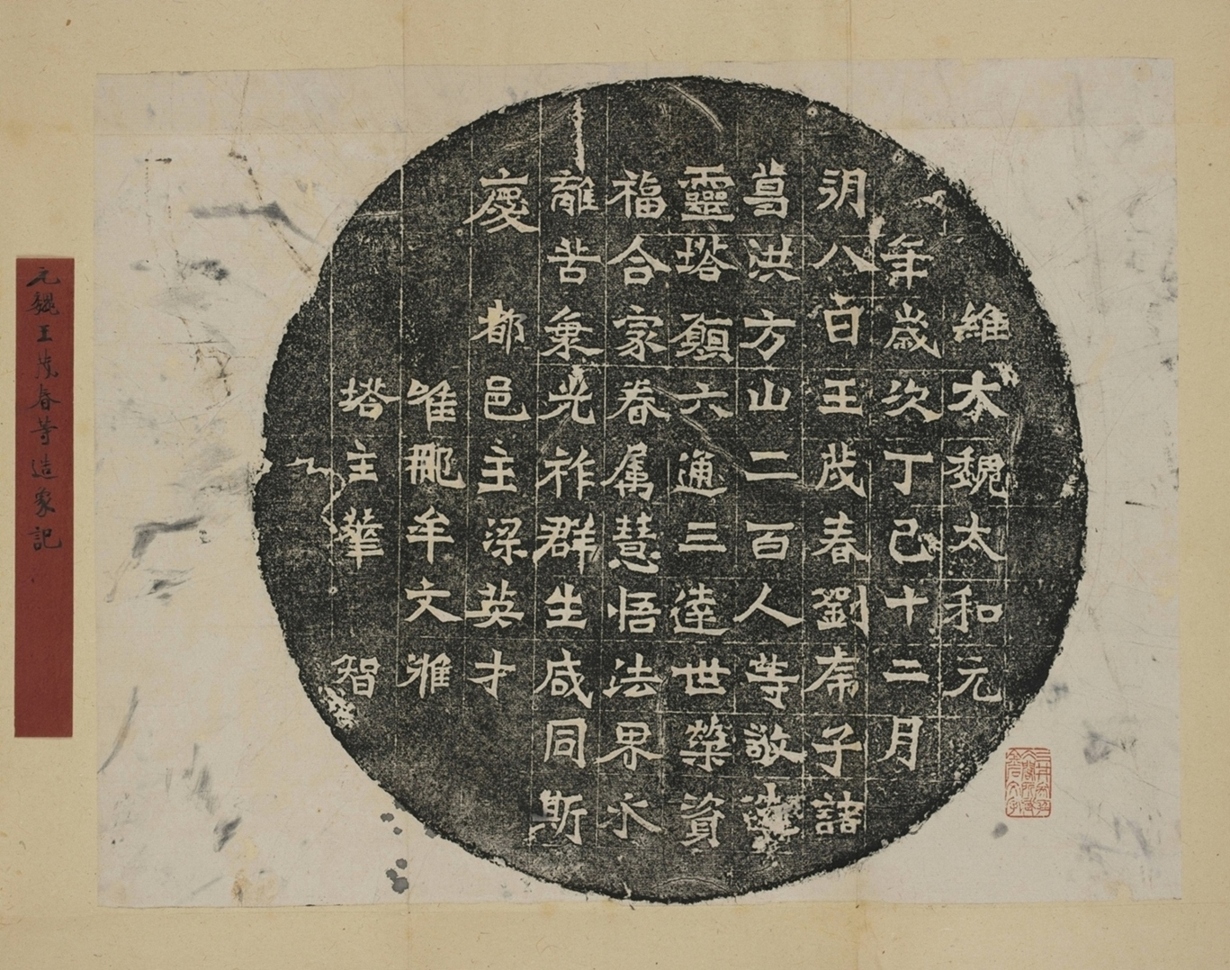 維大魏太和元
年歲次丁巳十二月
朔八日王茂春劉子諸
葛洪方山二百人等敬造
靈塔願六通三達世榮資
福合家眷属慧悟法界永
離苦乘光祚群生咸同斯
慶　都邑主梁英才
唯那牟文雍
塔主華　智
元魏王茂春等造象記